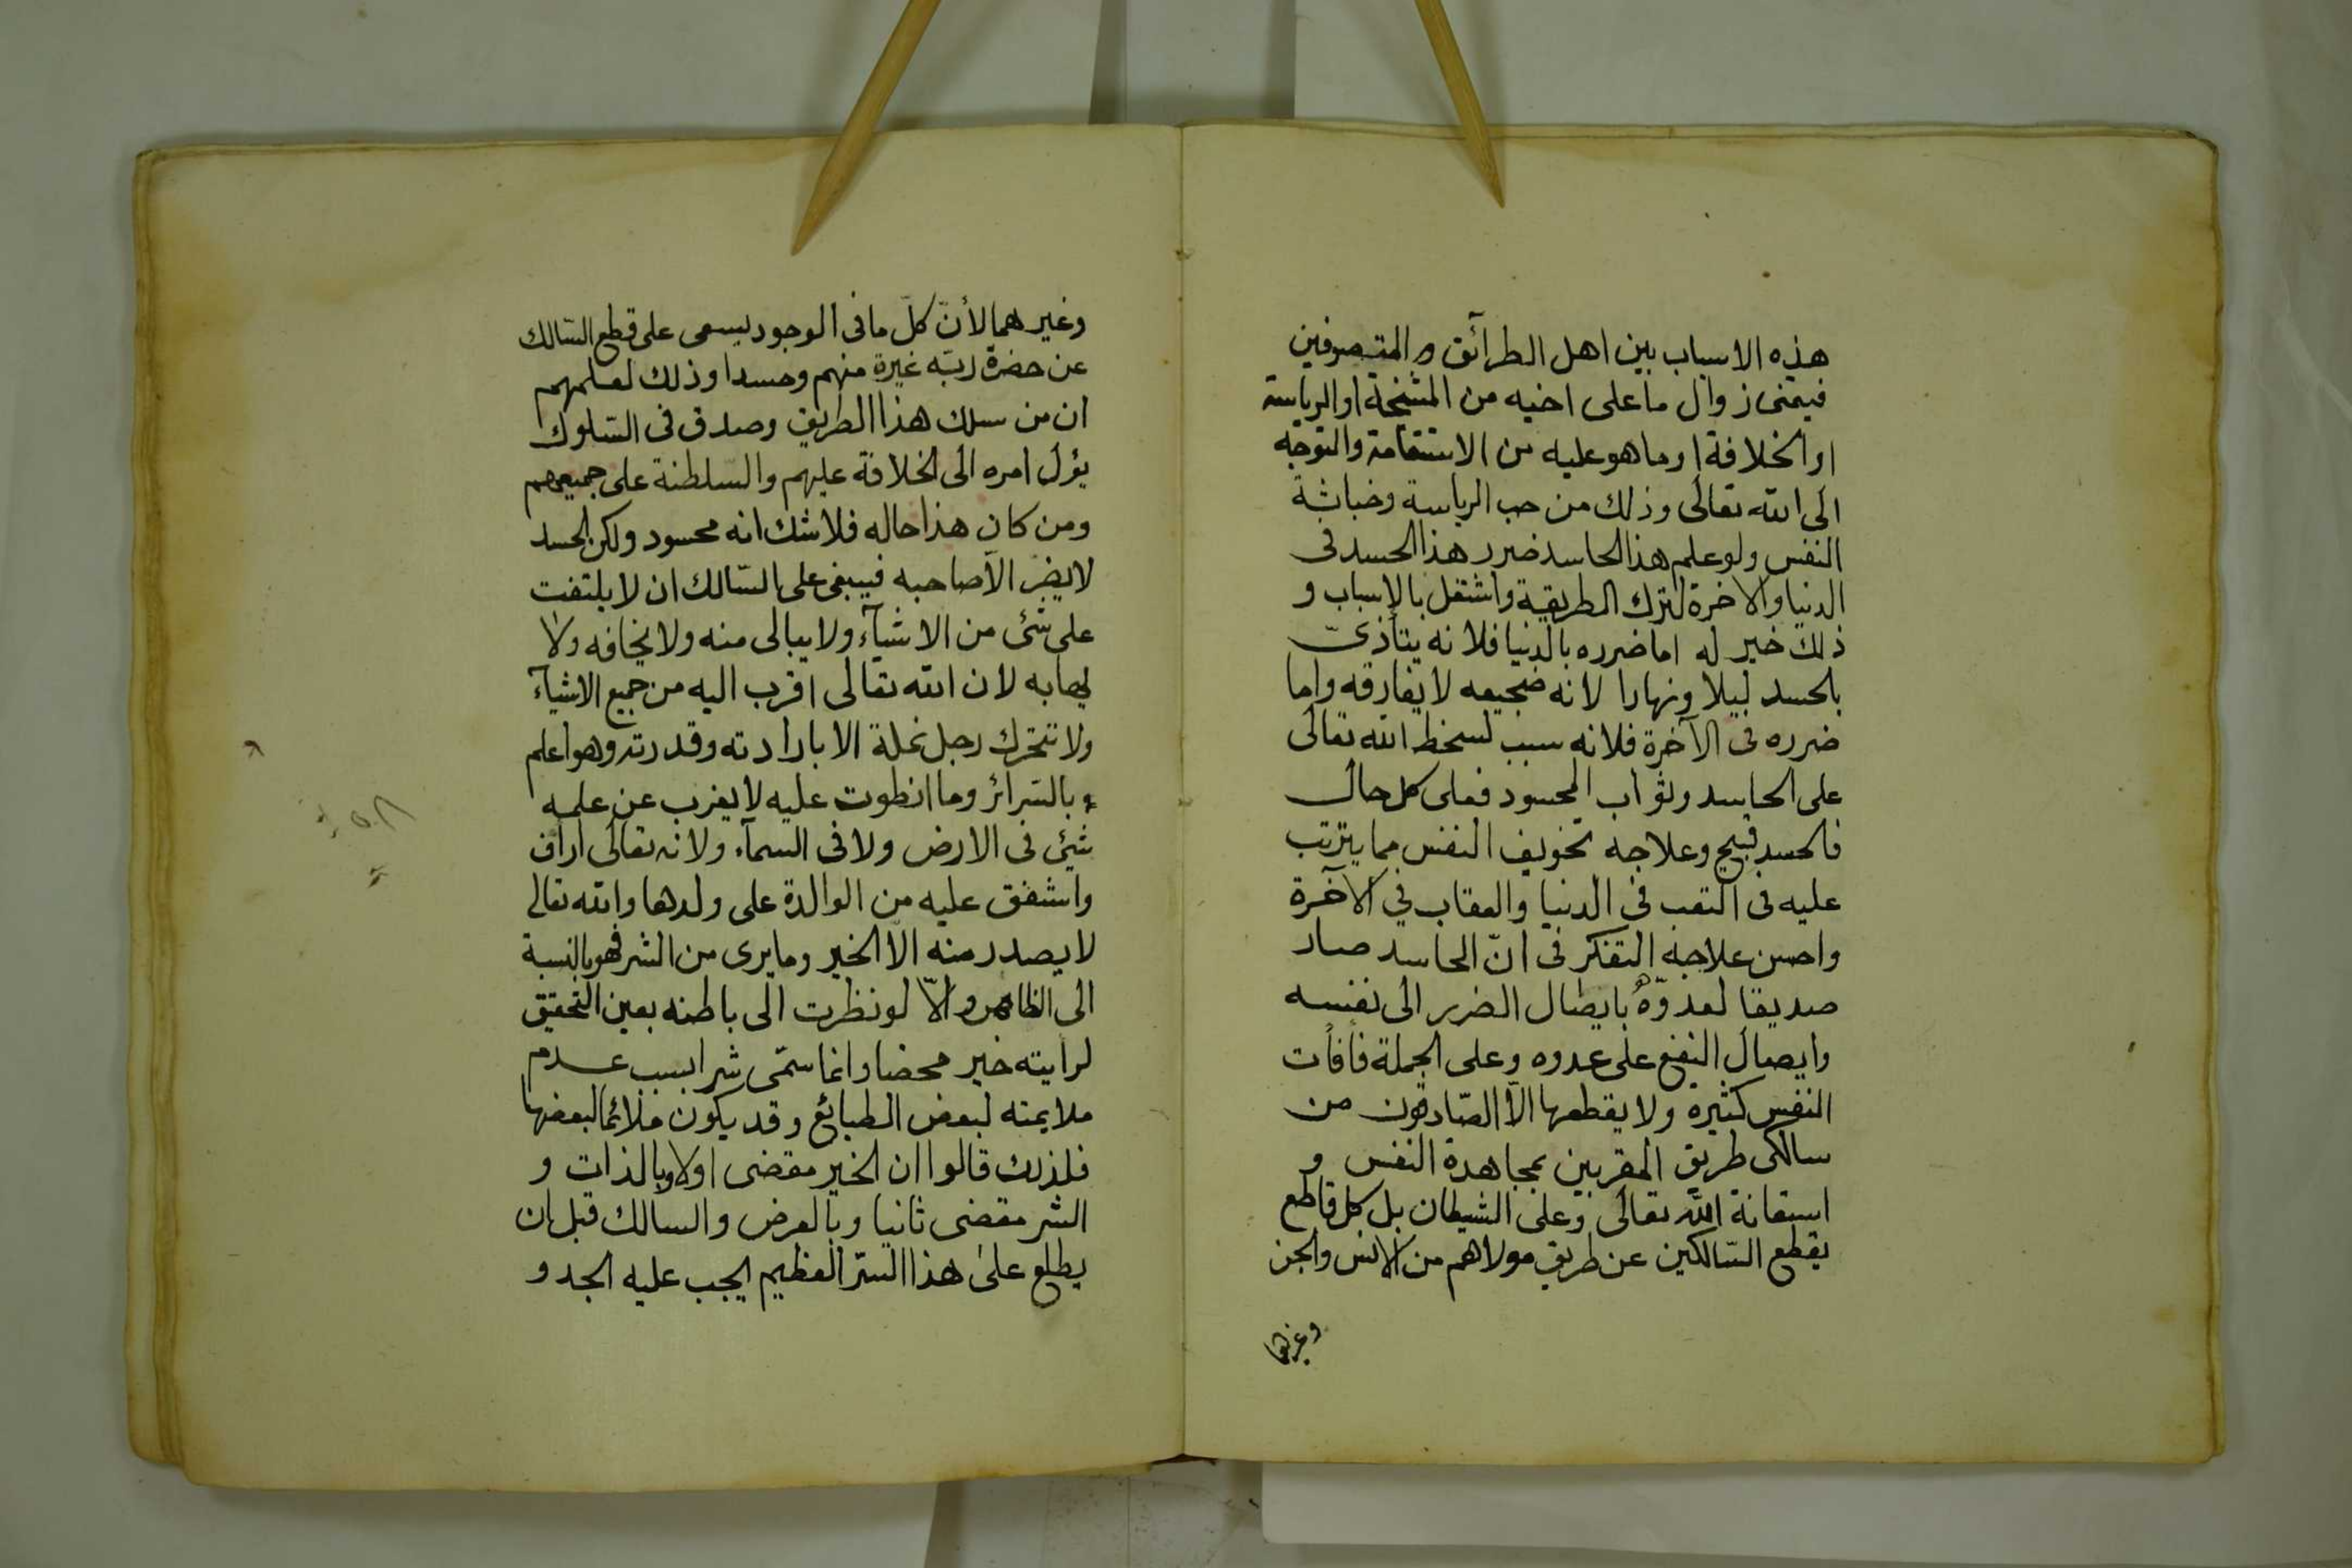 هذه الاسباب بين اهل الطرآئق والمتصوفين
فيتمنى زوال ما على اخيه من المشيخة او الرياسة
او الخلافة او ما هو عليه من الاستقامة والتوجه
الى الله تعالى وذلك من حب الرياسة وخباثة
النفس ولو علم هذا الحاسد ضرر هذا الحسد فى
الدنيا والاخرة لترك الطريقة واشتغل بالاسباب و
ذلك خير له اما ضرره بالدنيا فلانه يتأذىّ
بالحسد ليلا ونهارا لانه ضجيعه لا يفارقه واما
ضرره فى الآخرة فلانه سبب لسخط الله تعالى
على الحاسد وثواب المحسود فعلى كل حال
فالحسد قبيح وعلاجه تخويف النفس مما يترتب
عليه فى التعب فى الدنيا والعقاب في الآخرة
واحسن علاجه التفكر فى انّ الحاسد صار
صديقا لعدوّه بايصال الضرر الى نفسه
وايصال النفع على عدوه وعلى الجملة فأفات
النفس كثيره ولا يقطعها الّا الصّادقون من
سالكى طريق المقربين بمجاهدة النفس و
استعانة الله تعالى وعلى الشيطان بل كل قاطع
يقطع السّالكين عن طريق مولاهم من الانس والجن
وغيرهما
وغيرهما لأنّ كلّ ما فى الوجود يسعى على قطع السّالك
عن حضرة ربّه غيرة منهم وحسدا وذلك لعلمهم
ان من سلك هذا الطريق وصدق فى السّلوك
يؤل امره الى الخلافة عليهم والسّلطنة على جميعهم
ومن كان هذا حاله فلا شك انه محسود ولكن الحسد
لا يضر الّا صاحبه فينبغى على السّالك ان لا يلتفت
على شئ من الاشيآء ولا يبالى منه ولا يخافه ولا
يهابه لان الله تعالى اقرب اليه من جميع الاشيآء
ولا تتحرك رجل نملة الا بارادته وقدرته وهو اعلم
بالسّرائر وما انطوت عليه لا يعزب عن علمه
شيئ فى الارض ولا فى السمآء ولانه تعالى ارأف
واشفق عليه من الوالدة على ولدها والله تعالى
لا يصدر منه الا الخير وما يرى من الشر فهو بالنسبة
الى الظاهر والّا لو نظرت الى باطنه بعين التحقيق
لرايته خير محضا وانما سمّى شرا بسبب عدم
ملايمته لبعض الطبائع وقد يكون ملائما لبعضها
فلذلك قالوا ان الخير مقضى اولا وبالذات و
الشر مقضى ثانيا وبالعرض والسالك قبل ان
يطلع على هذا السّر العظيم يجب عليه الجد و